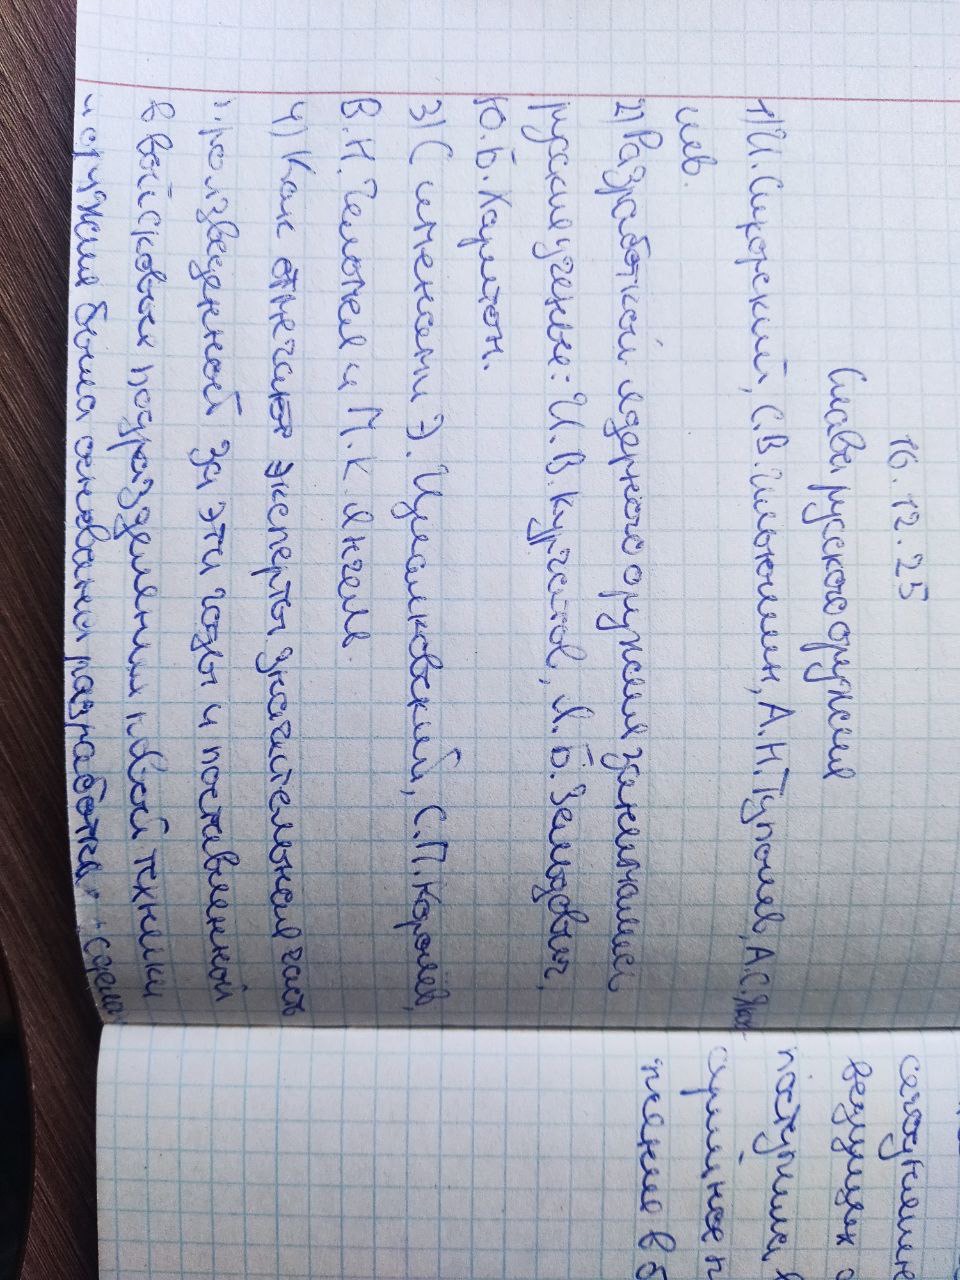 16.12.25
Слава руского оружия
1) И. Сикорский, С.В. Ильюшин, А.Н. Туполев, А.С. Яков-
лев.
2) Разработкой ядерного оружия занимались
русские ученые: И.В. Курчатов, Я.Б. Зельдович,
Ю.Б. Харитон.
3) С именами Э. Циолковский, С.П. Королёв,
В.Н. Челомея и М.К Янгеля.
4) Как отмечают эксперты значительная часть
произведенной за эти годы и поставленной
в войсковые подразделения новой техники
и оружия была основана разработках,
ведущих
поступила
серийное п
жение в б